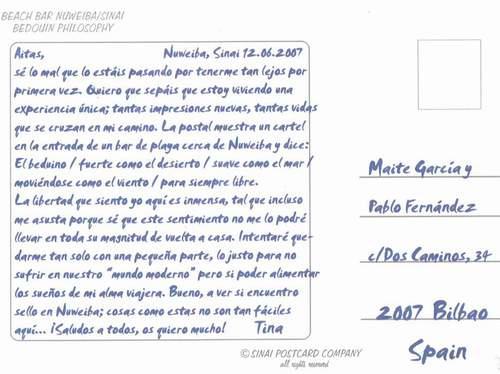 BEACH BAR NUWEIBA/SINAI
BEDOUIN PHILOSOPHY
Aitas, Nuweiba, Sinai 12.06.2007
sé lo mal que lo estáis pasando por tenerme tan lejos por
primera vez. Quiero que sepáis que estoy viviendo una
experiencia única; tantas impresiones nuevas, tantas vidas
que se cruzan en mi camino. La postal muestra un cartel
en la entrada de un bar de playa cerca de Nuweiba y dice:
El beduino / fuerte como el desierto / suave como el mar /
moviéndose como el viento / para siempre libre.
La libertad que siento yo aquí es inmensa, tal que incluso
me asusta porque sé que este sentimiento no me lo podré
llevar en toda su magnitud de vuelta a casa. Intentaré que-
darme tan solo con una pequeña parte, lo justo para no
sufrir en nuestro "mundo moderno" pero si poder alimentar
los sueños de mi alma viajera. Bueno, a ver si encuentro
sello en Nuweiba; cosas como estas no son tan fáciles
aquí... ¡Saludos a todos, os quiero mucho! Tina
Maite García y
Pablo Fernández
c/Dos Caminos, 34
2007 Bilbao
Spain
© SINAI POSTCARD COMPANY
all rights reserved